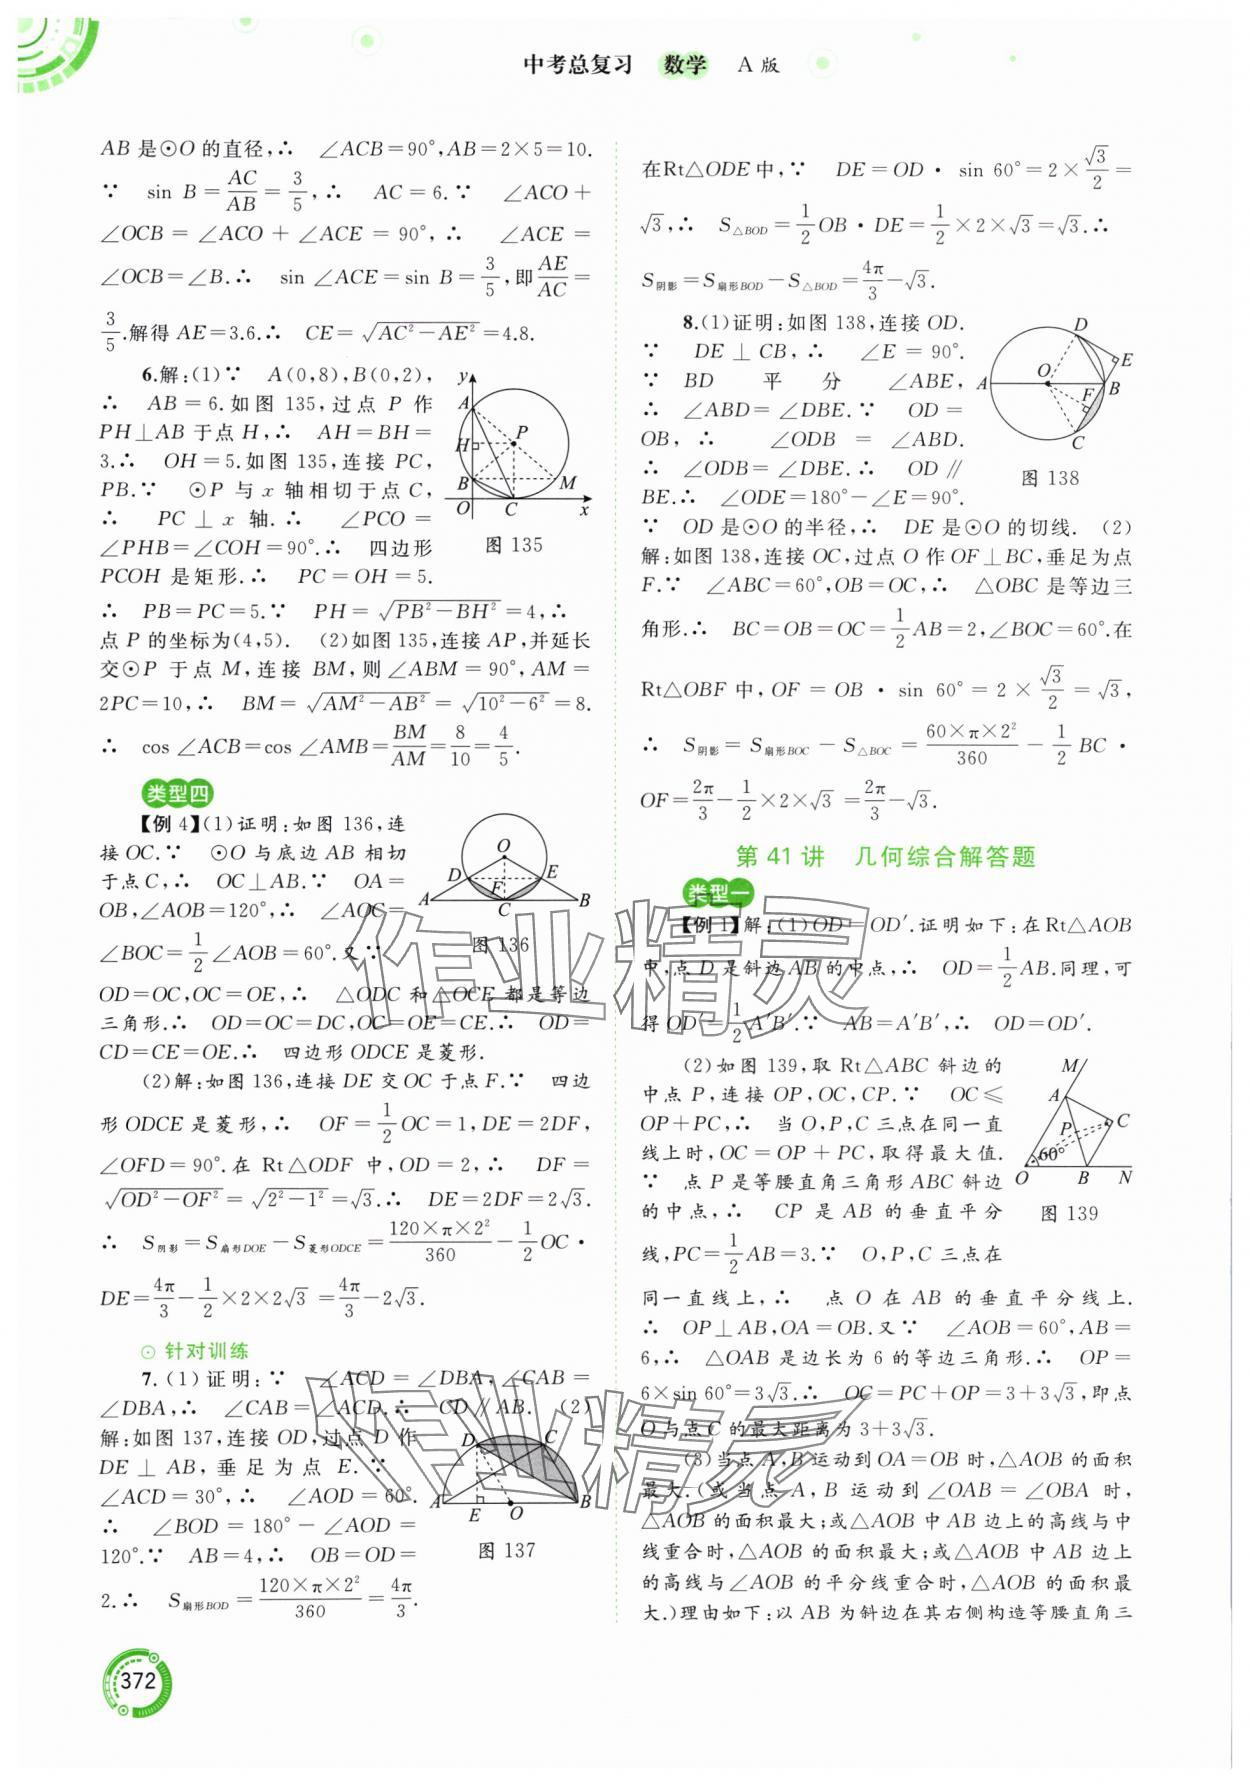 中考总复习 数学 A版
AB是⊙O的直径,∴ ∠ACB=90°,AB=2×5=10.
∵ sin B=AC/AB=3/5,∴ AC=6.∵ ∠ACO+
∠OCB=∠ACO+∠ACE=90°,∴ ∠ACE=
∠OCB=∠B.∴ sin∠ACE=sin B=3/5,即AE/AC=
3/5.解得AE=3.6.∴ CE=√(AC²-AE²)=4.8.
6.解:(1)∵ A(0,8),B(0,2),
∴ AB=6.如图135,过点P作
PH⊥AB于点H,∴ AH=BH=
3.∴ OH=5.如图135,连接PC,
PB.∵ ⊙P与x轴相切于点C,
∴ PC⊥x轴.∴ ∠PCO=
∠PHB=∠COH=90°.∴ 四边形
PCOH是矩形.∴ PC=OH=5.
∴ PB=PC=5.∵ PH=√(PB²-BH²)=4,∴
点P的坐标为(4,5). (2)如图135,连接AP,并延长
交⊙P于点M,连接BM,则∠ABM=90°,AM=
2PC=10,∴ BM=√(AM²-AB²)=√(10²-6²)=8.
∴ cos∠ACB=cos∠AMB=BM/AM=8/10=4/5.
y A H P B M O C x
图135
类型四
【例4】(1)证明:如图136,连
接OC.∵ ⊙O与底边AB相切
于点C,∴ OC⊥AB.∵ OA=
OB,∠AOB=120°,∴ ∠AOC=
∠BOC=1/2∠AOB=60°.又∵
OD=OC,OC=OE,∴ △ODC和△OCE都是等边
三角形.∴ OD=OC=DC,OC=OE=CE.∴ OD=
CD=CE=OE.∴ 四边形ODCE是菱形.
O D E F A C B
图136
(2)解:如图136,连接DE交OC于点F.∵ 四边
形ODCE是菱形,∴ OF=1/2OC=1,DE=2DF,
∠OFD=90°.在Rt△ODF中,OD=2,∴ DF=
√(OD²-OF²)=√(2²-1²)=√3.∴ DE=2DF=2√3.
∴ S阴影=S扇形DOE-S菱形ODCE=120×π×2²/360-1/2OC·
DE=4π/3-1/2×2×2√3=4π/3-2√3.
针对训练
7.(1)证明:∵ ∠ACD=∠DBA,∠CAB=
∠DBA,∴ ∠CAB=∠ACD.∴ CD∥AB. (2)
解:如图137,连接OD,过点D作
DE⊥AB,垂足为点E.∵
∠ACD=30°,∴ ∠AOD=60°.
∴ ∠BOD=180°-∠AOD=
120°.∵ AB=4,∴ OB=OD=
2.∴ S扇形BOD=120×π×2²/360=4π/3.
D C A E O B
图137
372
在Rt△ODE中,∵ DE=OD·sin 60°=2×√3/2=
√3,∴ S△BOD=1/2OB·DE=1/2×2×√3=√3.∴
S阴影=S扇形BOD-S△BOD=4π/3-√3.
8.(1)证明:如图138,连接OD.
∵ DE⊥CB,∴ ∠E=90°.
∵ BD平分∠ABE,
∴ ∠ABD=∠DBE.∵ OD=
OB,∴ ∠ODB=∠ABD.
∴ ∠ODB=∠DBE.∴ OD∥
BE.∴ ∠ODE=180°-∠E=90°.
∵ OD是⊙O的半径,∴ DE是⊙O的切线. (2)
解:如图138,连接OC,过点O作OF⊥BC,垂足为点
F.∵ ∠ABC=60°,OB=OC,∴ △OBC是等边三
角形.∴ BC=OB=OC=1/2AB=2,∠BOC=60°.在
Rt△OBF中,OF=OB·sin 60°=2×√3/2=√3,
∴ S阴影=S扇形BOC-S△BOC=60×π×2²/360-1/2BC·
OF=2π/3-1/2×2×√3=2π/3-√3.
D E O A B F C
图138
第41讲 几何综合解答题
类型一
【例1】解:(1)OD=OD′.证明如下:在Rt△AOB
中,点D是斜边AB的中点,∴ OD=1/2AB.同理,可
得OD′=1/2A′B′.∵ AB=A′B′,∴ OD=OD′.
(2)如图139,取Rt△ABC斜边的
中点P,连接OP,OC,CP.∵ OC≤
OP+PC,∴ 当O,P,C三点在同一直
线上时,OC=OP+PC,取得最大值.
∵ 点P是等腰直角三角形ABC斜边
的中点,∴ CP是AB的垂直平分
线,PC=1/2AB=3.∵ O,P,C三点在
同一直线上,∴ 点O在AB的垂直平分线上.
∴ OP⊥AB,OA=OB.又∵ ∠AOB=60°,AB=
6,∴ △OAB是边长为6的等边三角形.∴ OP=
6×sin 60°=3√3.∴ OC=PC+OP=3+3√3,即点
O与点C的最大距离为3+3√3.
M A C P 60° O B N
图139
(3)当点A,B运动到OA=OB时,△AOB的面积
最大.(或当点A,B运动到∠OAB=∠OBA时,
△AOB的面积最大;或△AOB中AB边上的高线与中
线重合时,△AOB的面积最大;或△AOB中AB边上
的高线与∠AOB的平分线重合时,△AOB的面积最
大.)理由如下:以AB为斜边在其右侧构造等腰直角三
作业精灵
作业精灵